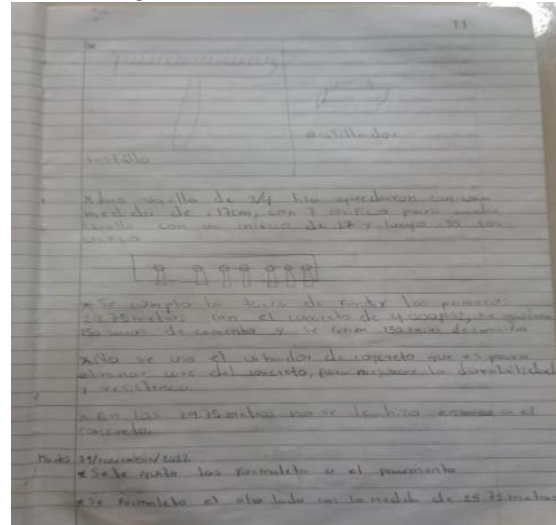 11
rastrillo
* Las varilla de 3/4 lisa quedaron con una
medida de 17cm, con 7 para media
varilla con un de 17 y luego 10 las
* Se cumplio la tarea de fundir los primeros
29.75 metros con el concreto de 4,000 psi, se
150 sacos de cemento y se 150 sacos de
* No se uso el vibrador de concreto que es para
eliminar aire del concreto, para mejorar la durabilidad
y resistencia.
* En los 29.75 metros no se le hizo ensayo a el
concreto.
Martes 29/noviembre/2022
* Se le quito las formaleta a el pavimento
* Se formaleto el otro lado con la medida de metros